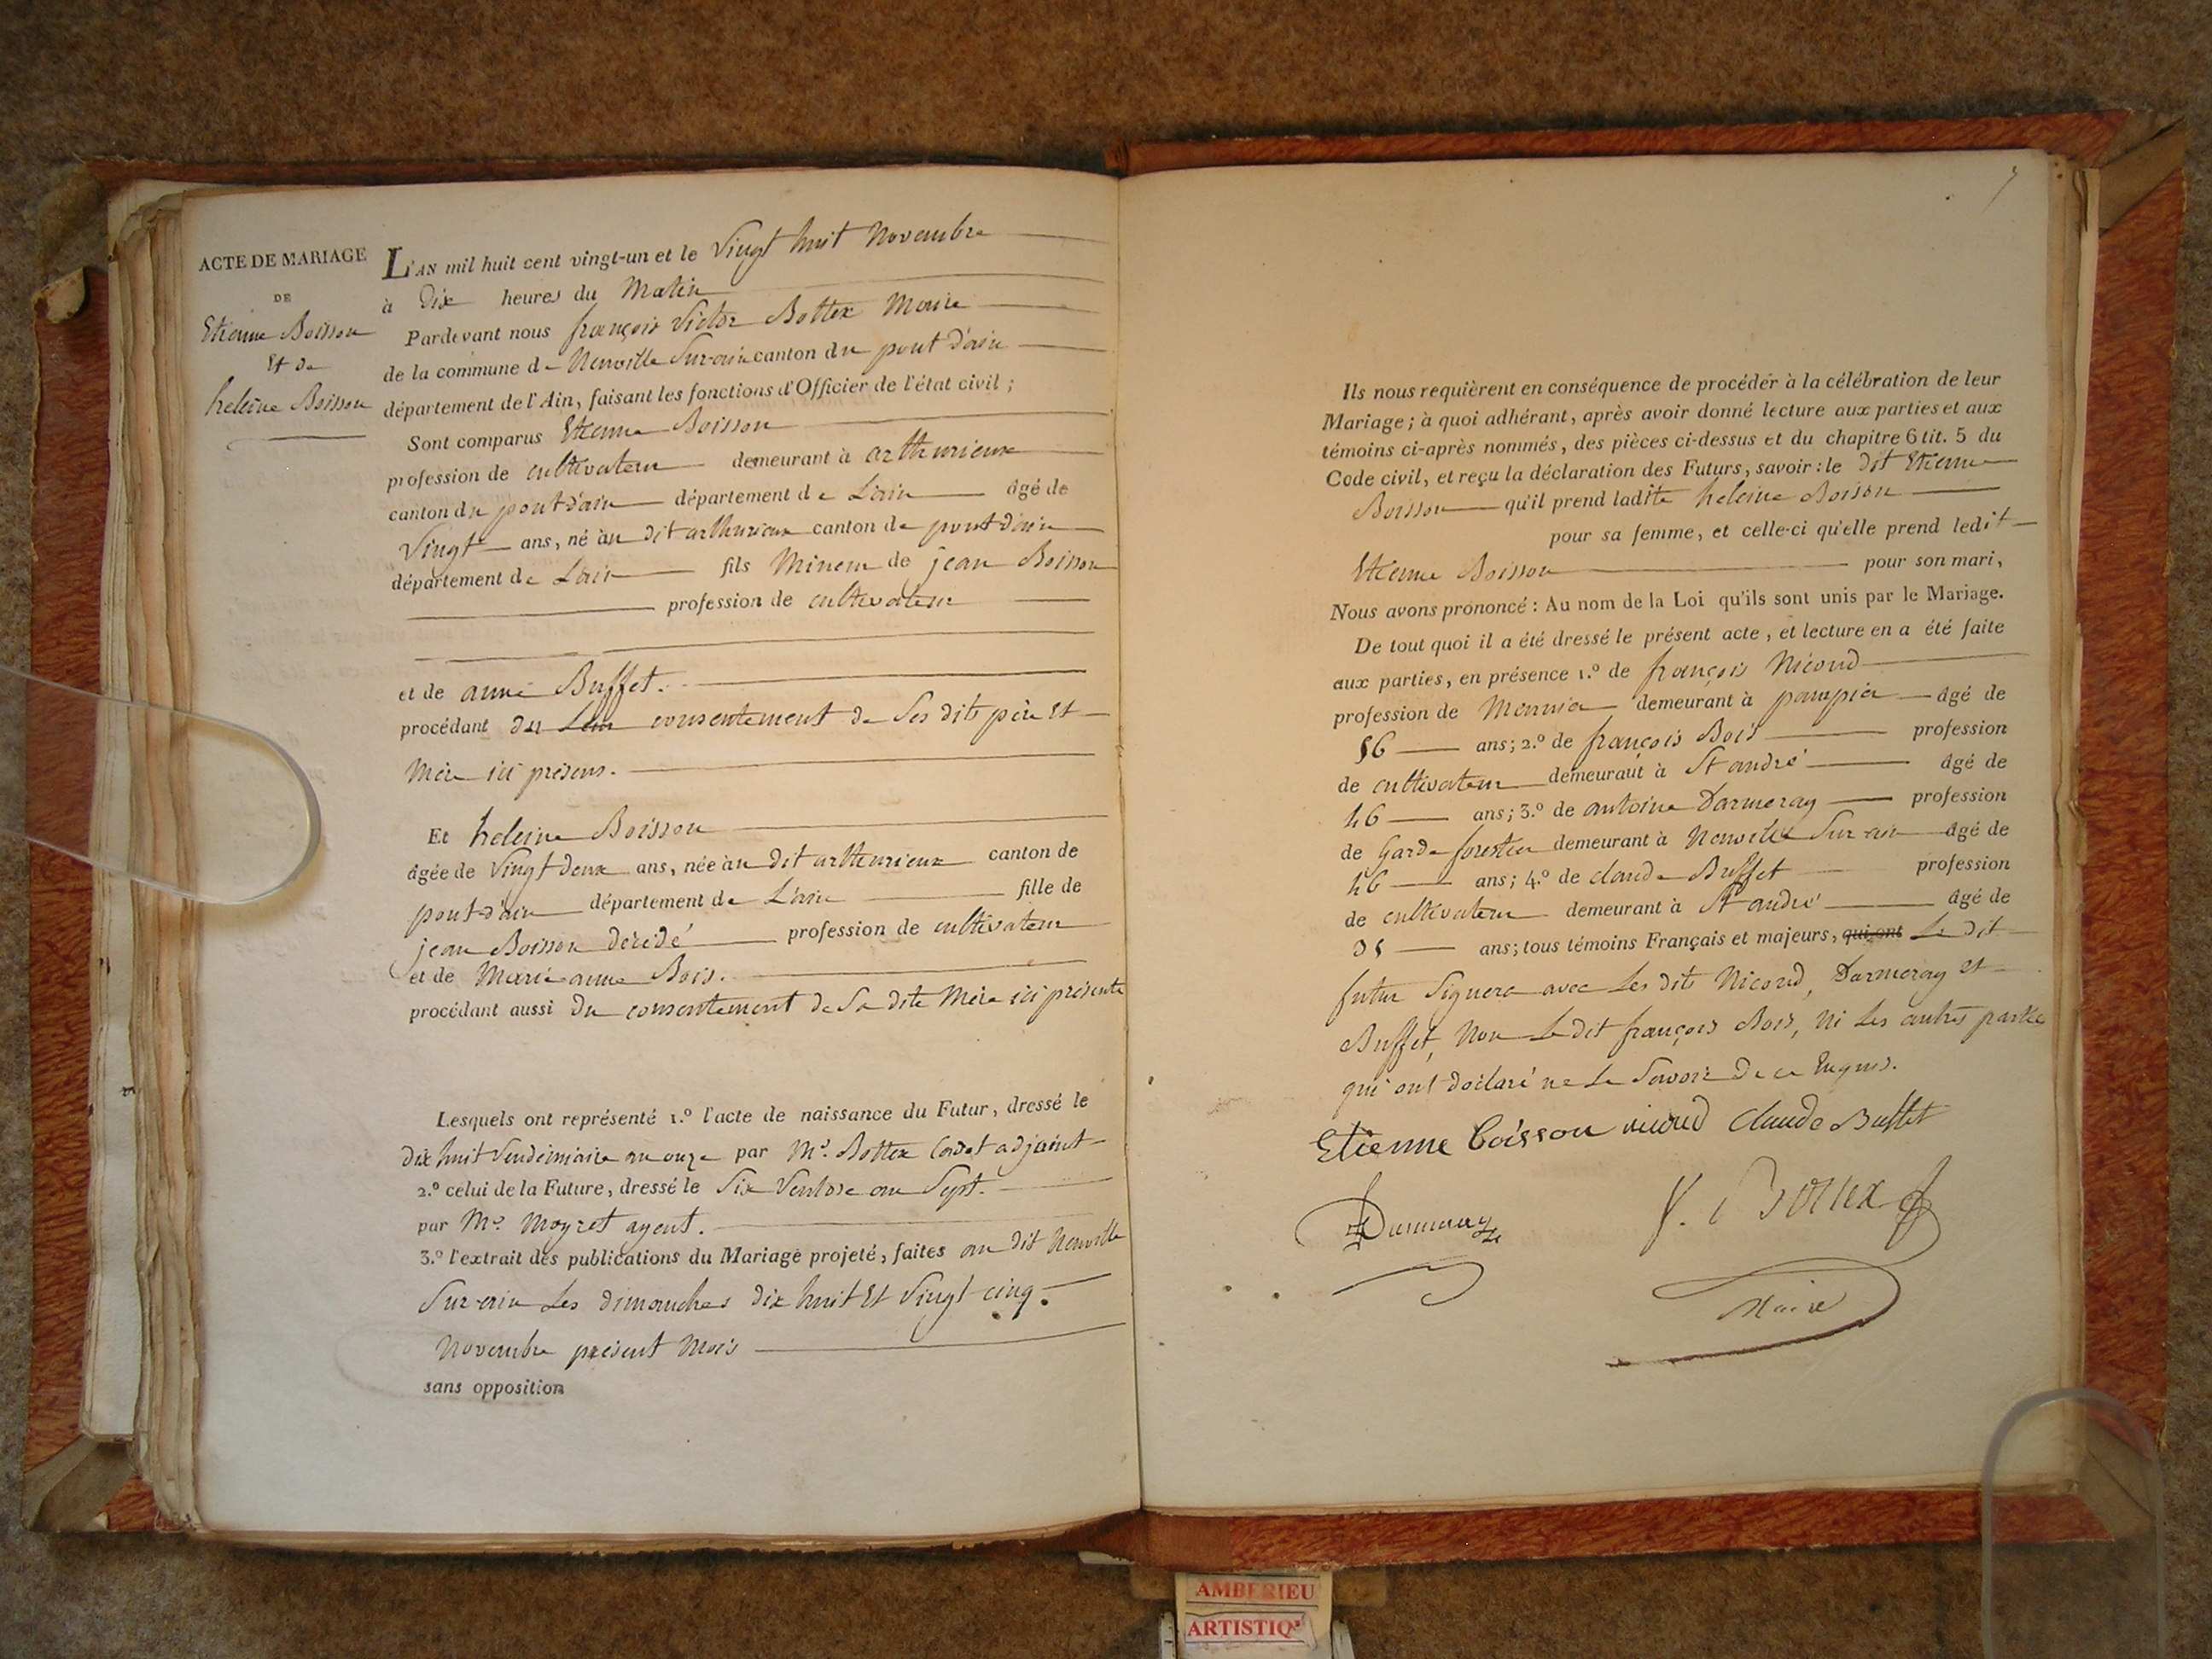 ACTE DE MARIAGE
DE
Etienne Boisson
Et de
heleine Boisson
L'AN mil huit cent vingt-un et le Vingt huit Novembre
à Dix heures du Matin
Pardevant nous françois Victor Bottex Maire
de la commune de Neuville Sur-ain canton du pont d'ain
département de l'Ain, faisant les fonctions d'Officier de l'état civil ;
Sont comparus Etienne Boisson
profession de cultivateur demeurant à arthurieux
canton du pont d'ain département de L'ain âgé de
Vingt ans, né au dit arthurieux canton de pont d'ain
département de L'ain fils Mineur de jean Boisson
profession de cultivateur
et de anne Buffet.
procédant du Leur consentement de Ses dits père Et
Mère ici présens.
Et heleine Boisson
âgée de Vingt deux ans, née au dit arthurieux canton de
pont-d'ain département de L'ain fille de
jean Boisson décédé profession de cultivateur
et de Marie anne Bois.
procédant aussi du consentement de Sa dite Mère ici présente
Lesquels ont représenté 1.º l'acte de naissance du Futur, dressé le
dix huit Vendémiaire an onze par Mr. Bottex Cadet adjoint
2.º celui de la Future, dressé le Six Ventose an Sept.
par Mr. Moyret agent.
3.º l'extrait des publications du Mariage projeté, faites au dit Neuville
Sur-ain Les dimanches dix huit Et Vingt cinq
Novembre présent Mois
sans opposition
7
Ils nous requièrent en conséquence de procéder à la célébration de leur
Mariage ; à quoi adhérant, après avoir donné lecture aux parties et aux
témoins ci-après nommés, des pièces ci-dessus et du chapitre 6 tit. 5 du
Code civil, et reçu la déclaration des Futurs, savoir : le dit Etienne
Boisson qu'il prend ladite heleine Boisson
pour sa femme, et celle-ci qu'elle prend ledit
Etienne Boisson pour son mari,
Nous avons prononcé : Au nom de la Loi qu'ils sont unis par le Mariage.
De tout quoi il a été dressé le présent acte, et lecture en a été faite
aux parties, en présence 1.º de françois Nicoud
profession de Meunier demeurant à pampier âgé de
56 ans ; 2.º de françois Bois profession
de cultivateur demeurant à St andré âgé de
46 ans ; 3.º de antoine Darmeray profession
de Garde forestier demeurant à Neuville Sur-ain âgé de
46 ans ; 4.º de claude Buffet profession
de cultivateur demeurant à St andré âgé de
35 ans ; tous témoins Français et majeurs, qui ont Le dit
futur Signera avec Les dits Nicoud, Darmeray et
Buffet, Non Le dit françois Bois, Ni Les autres partie
qui ont déclaré ne Le Savoir de ce Enquis.
Etienne boisson nicoud claude Buffet
Darmeray
V. Bottex
Maire
AMBERIEU
ARTISTIQ